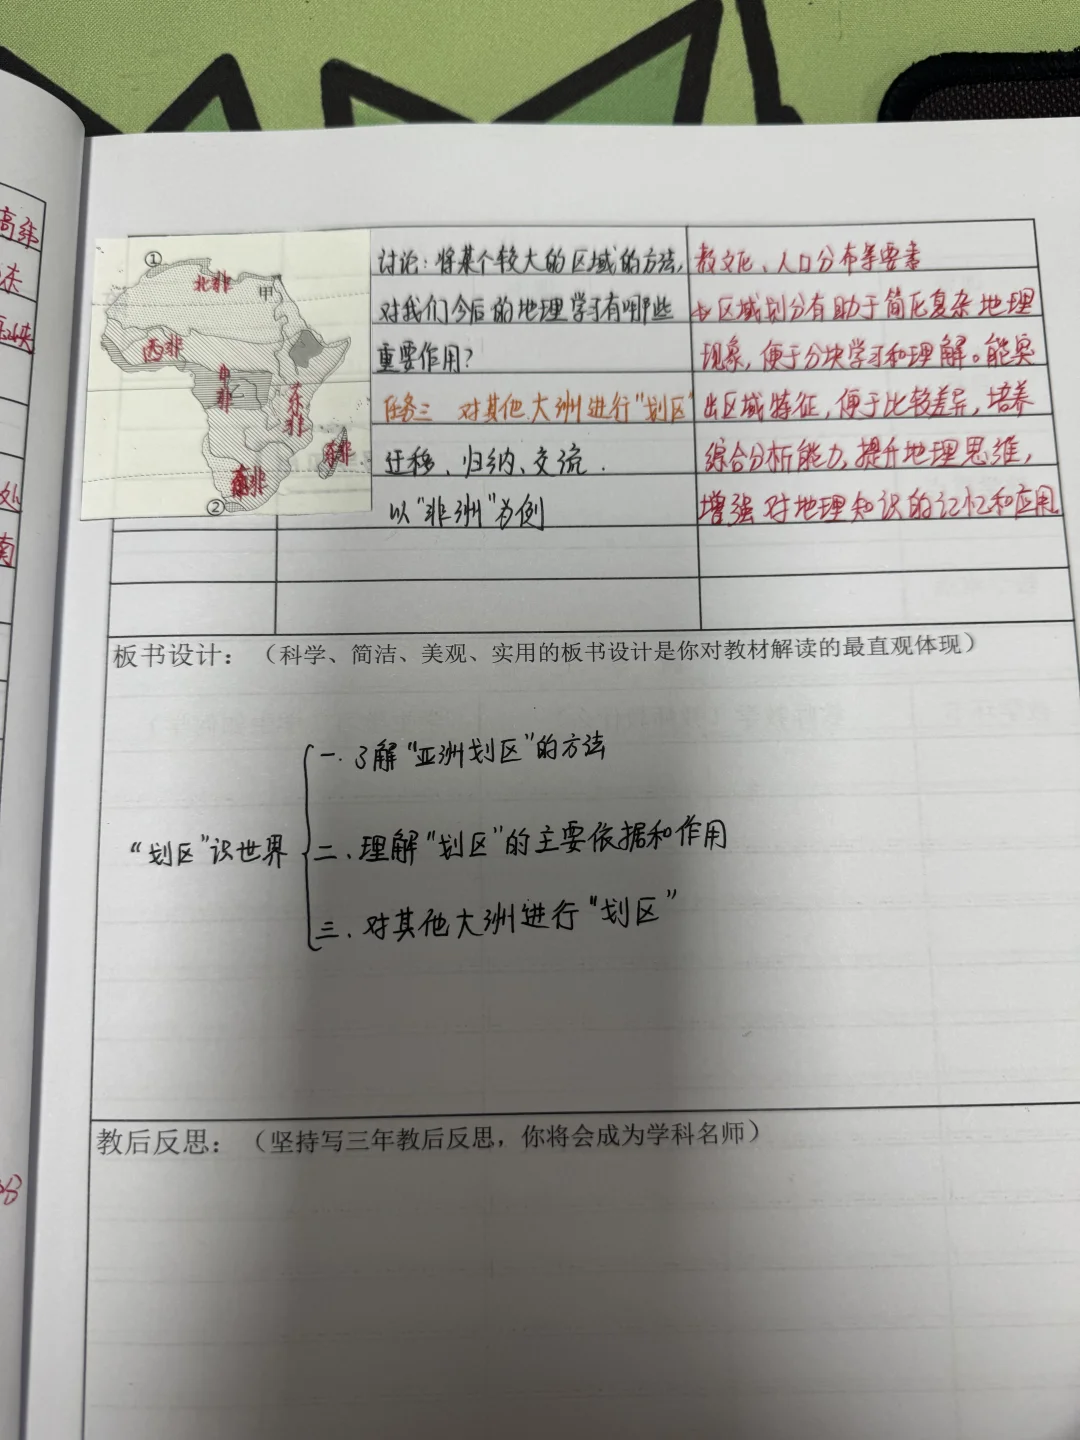 高纬
①
北非
甲
西非
中非
东非
南非
②
讨论：将某个较大的区域的方法，
对我们今后的地理学习有哪些
重要作用？
任务三 对其他大洲进行"划区"
迁移、归纳、交流.
以"非洲"为例
教文化、人口分布等要素
区域划分有助于简化复杂地理
现象，便于分块学习和理解。能突
出区域特征，便于比较差异，培养
综合分析能力，提升地理思维，
增强对地理知识的记忆和应用
板书设计：（科学、简洁、美观、实用的板书设计是你对教材解读的最直观体现）
"划区"识世界
一.了解"亚洲划区"的方法
二、理解"划区"的主要依据和作用
三、对其他大洲进行"划区"
教后反思：（坚持写三年教后反思，你将会成为学科名师）